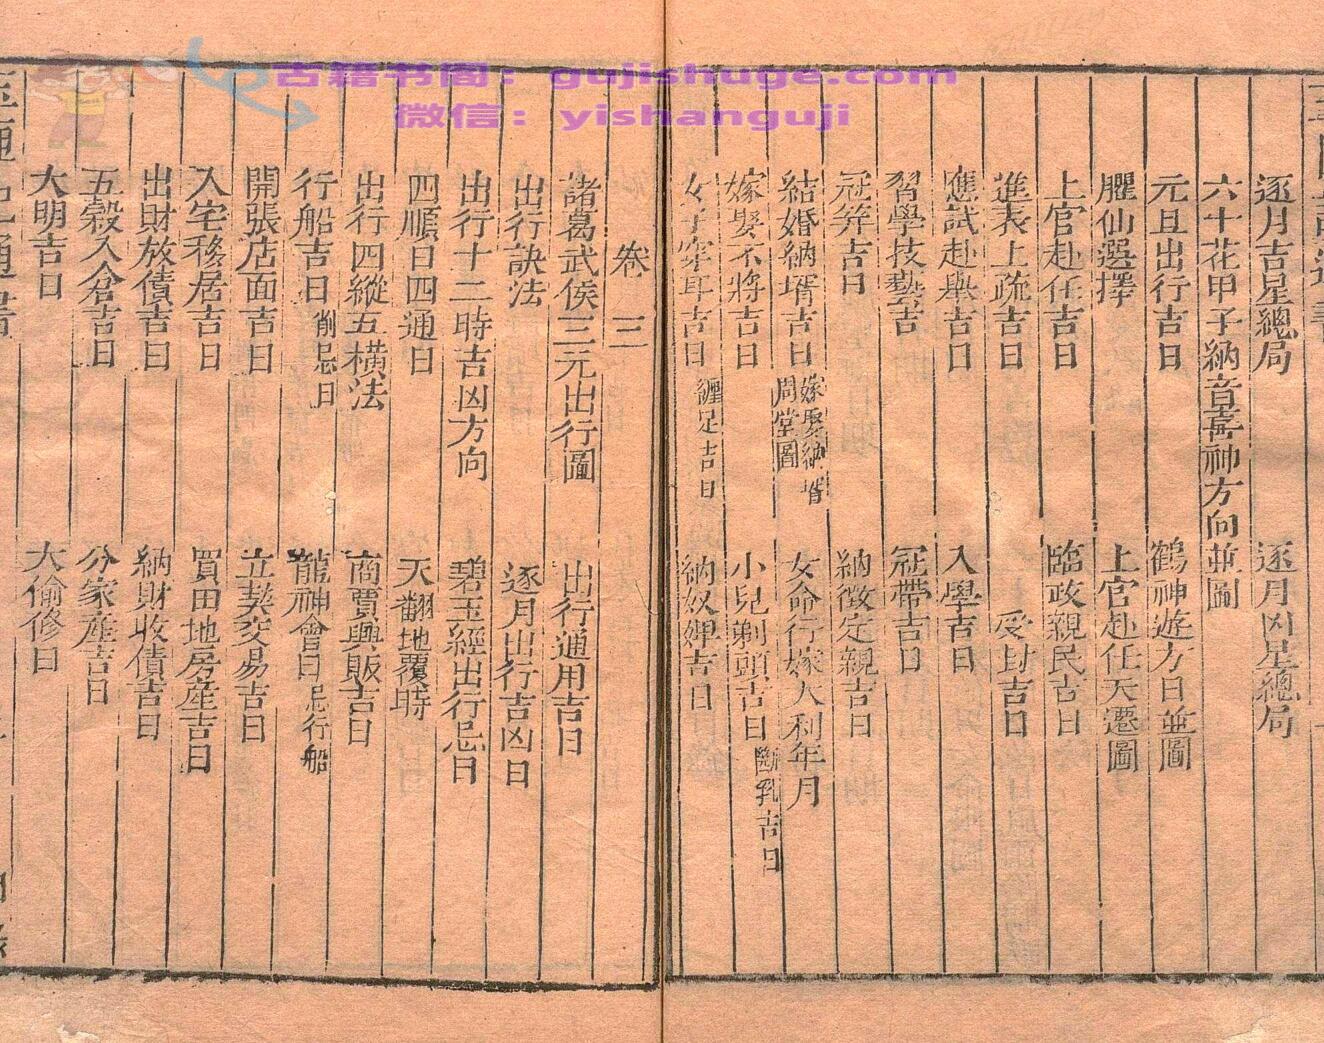 古籍书阁：gujishuge.com
微信：yishanguji
逐月吉星總局 逐月凶星總局
六十花甲子納音喜神方向並圖
元旦出行吉日 鶴神遊方日並圖
臞仙選擇 上官赴任天遷圖
上官赴任吉日 臨政親民吉日
進表上疏吉日 受封吉日
應試赴舉吉日 入學吉日
習學技藝吉 冠帶吉日
冠笄吉日 納徵定親吉日
結婚納壻吉日 嫁娶納壻周堂圖 女命行嫁大利年月
嫁娶不將吉日 小兒剃頭吉日 斷乳吉日
女子穿耳吉日 纏足吉日 納奴婢吉日
卷三
諸葛武侯三元出行圖 出行通用吉日
出行訣法 逐月出行吉凶日
出行十二時吉凶方向 碧玉經出行忌日
四順日四通日 天翻地覆時
出行四縱五橫法 商賈興販吉日
行船吉日 忌日 龍神會日 忌行船
開張店面吉日 立契交易吉日
入宅移居吉日 買田地房產吉日
出財放債吉日 納財收債吉日
五穀入倉吉日 分家產吉日
大明吉日 大偷修日